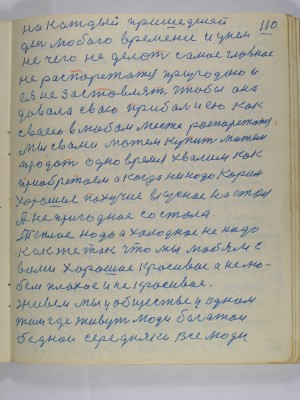 110
на каждый пришедшей
день любого времени и у нем
не чего не делот самое главное
не распоретжат природою и
ея не застовлят чтобы она
давала сваю прибал и ею как
сваею в любом месте распорежат
мы сваими можем купит можем
продат одно время хвалим как
приобретаем а когда
хорошее пахучие вкусное на стол
А не пригодное со стола.
Теплое надо а холодное не надо
как же так что мы любим с
вами хорошое красивае а не лю-
бем плохое и не красивае.
Живем мы у обществе у одном
там где живут люди богатой
бедной середняк и все люди